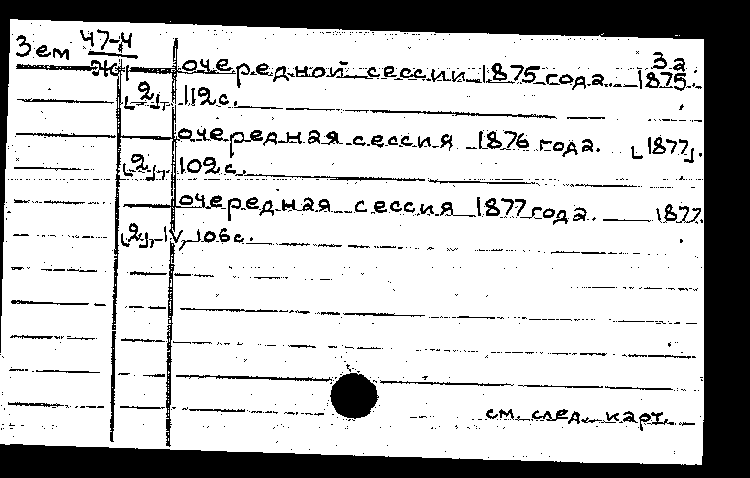 Зем 47-4 3а
очередной сессии 1875 года. 1875.
[2], 112с.
очередная сессия 1876 года. [1877].
[2], 102с.
очередная сессия 1877 года. 1877.
[2], IV, 106с.
см. след. карт.